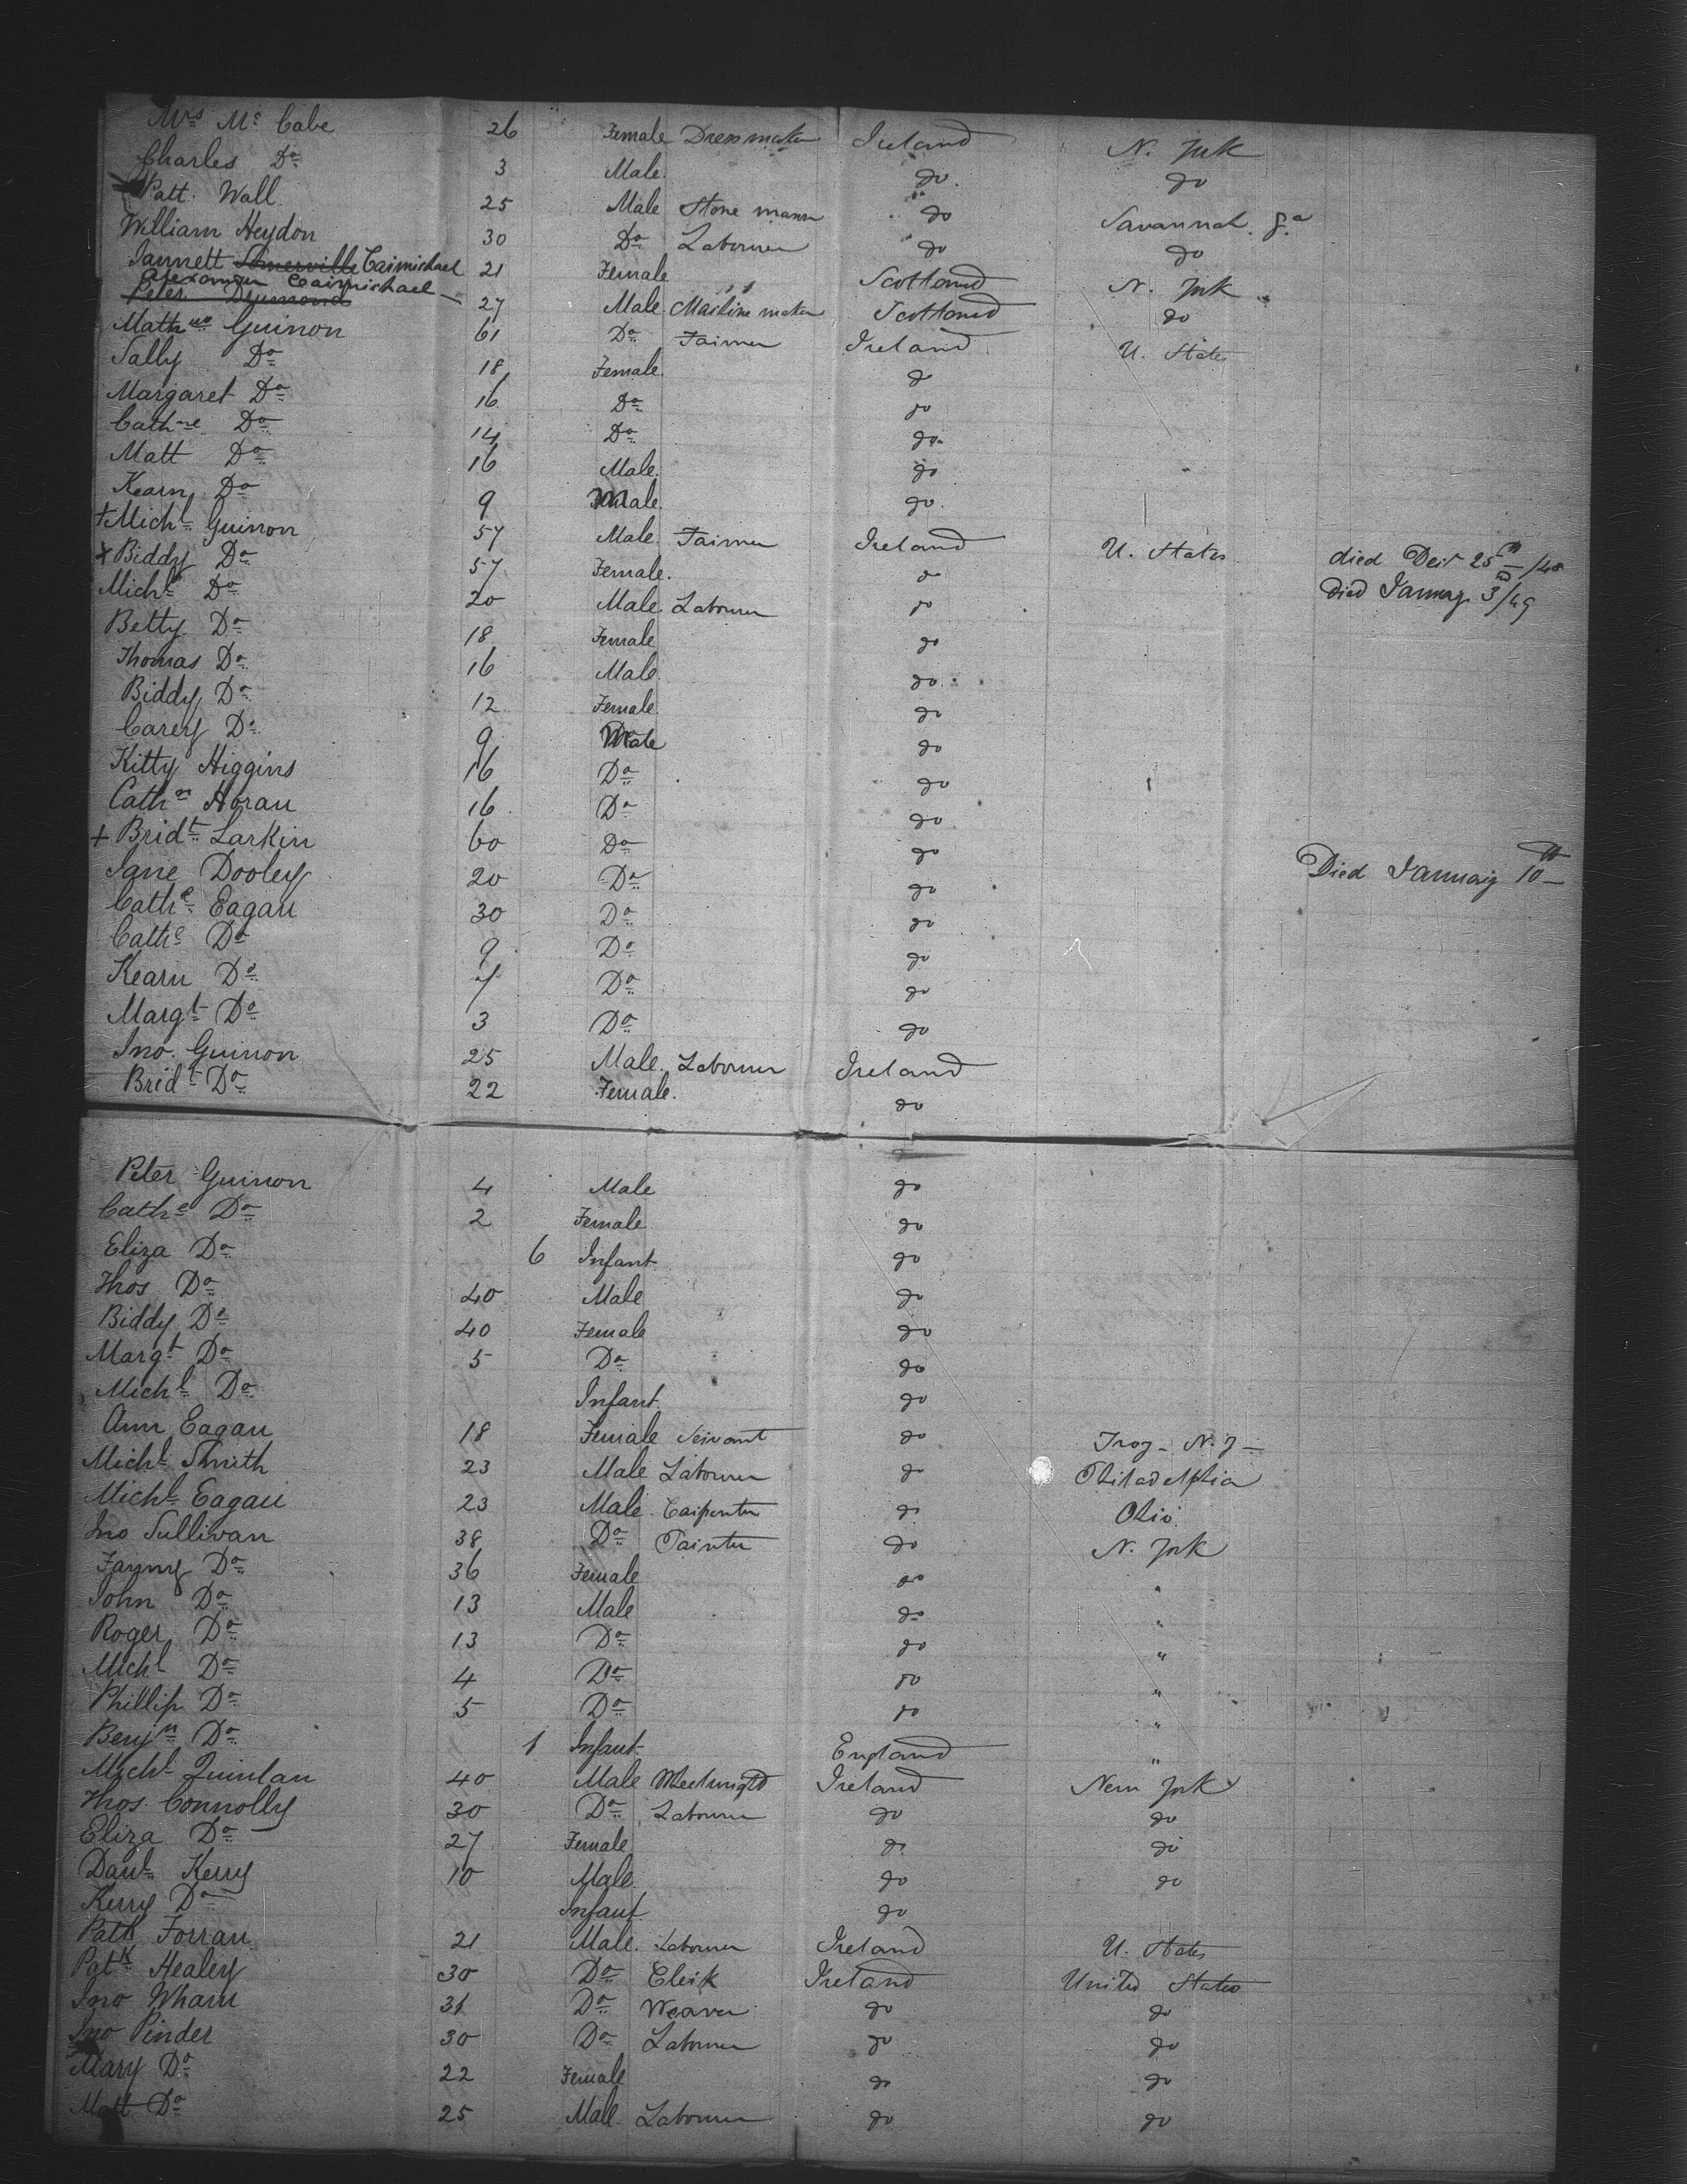 Mrs Mc Cabe 26 Female Dress maker Ireland N. York
Charles Do 3 Male do do
Patt Wall 25 Male Stone mason do Savannah Ga
William Heydon 30 Do Labourer do do
Jannett Somerville Carmichael 21 Female Scotland N. York
Alexander Carmichael
Peter Drumond 27 Male maker Scotland do
Guinon 61 Do Farmer Ireland U. States
Sally Do 18 Female do
Margaret Do 16 Do do
Cathne Do 14 Do do
Matt Do 16 Male do
Kearn Do 9 Male do
+ Michl Guinon 57 Male Farmer Ireland U. States died Decr 25th /48
x Biddy Do 57 Female do Died January 3rd /49
Michl Do 20 Male Labourer do
Betty Do 18 Female do
Thomas Do 16 Male do
Biddy Do 12 Female do
Carey Do 9 Male do
Kitty Higgins 16 Do do
Cathn Horan 16 Do do
+ Bridt Larkin 60 Do do Died January 10th
Jane Dooley 20 Do do
Cathe Eagan 30 Do do
Cathe Do 9 Do do
Kearn Do 7 Do do
Margt Do 3 Do do
Jno. Guinon 25 Male Labourer Ireland
Bridt Do 22 Female do
Peter Guinon 4 Male do
Cathe Do 2 Female do
Eliza Do 6 Infant do
Thos Do 40 Male do
Biddy Do 40 Female do
Margt Do 5 Do do
Michl Do Infant do
Ann Eagan 18 Female Servant do Troy - N. Y -
Michl Smith 23 Male Labourer do Philadelphia
Michl Eagan 23 Male Carpenter do Ohio
Jno Sullivan 38 Do Painter do N. York
Fanny Do 36 Female do "
John Do 13 Male do "
Roger Do 13 Do do "
Michl Do 4 Do do "
Phillip Do 5 Do do "
Benjn Do 1 Infant England "
Michl Quinlan 40 Male Ireland New York
Thos. Connolly 30 Do Labourer do do
Eliza Do 27 Female do do
Danl Kerry 10 Male do do
Kerry Do Infant do
Patk Forran 21 Male Labourer Ireland U. States
Patk Healey 30 Do Clerk Ireland United States
Jno Wham 31 Do Weaver do do
Jno Pinder 30 Do Labourer do do
Mary Do 22 Female do do
Matt Do 25 Male Labourer do do